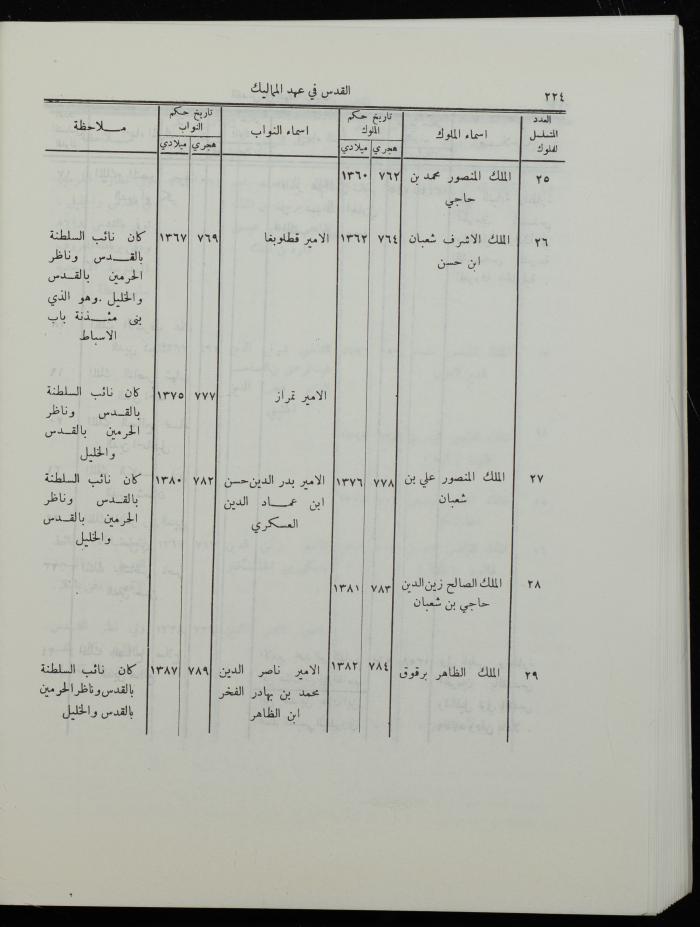 ٢٢٤
القدس في عهد المماليك
العدد المتسلسل للملوك | اسماء الملوك | تاريخ حكم الملوك هجري ميلادي | اسماء النواب | تاريخ حكم النواب هجري ميلادي | مـلاحظة
٢٥ | الملك المنصور محمد بن | ٧٦٢ | ١٣٦٠
حاجي
٢٦ | الملك الاشرف شعبان | ٧٦٤ | ١٣٦٢ | الامير قطلوبغا | ٧٦٩ | ١٣٦٧ | كان نائب السلطنة
ابن حسن | بالقـدس وناظر
الحرمين بالقـدس
والخليل . وهو الذي
بنى مئـذنة باب
الاسباط
الامير تمراز | ٧٧٧ | ١٣٧٥ | كان نائب السلطنة
بالقـدس وناظر
الحرمين بالقـدس
والخليل
٢٧ | الملك المنصور علي بن | ٧٧٨ | ١٣٧٦ | الامير بدر الدين حسن | ٧٨٢ | ١٣٨٠ | كان نائب السلطنة
شعبان | ابن عمـاد الدين | بالقـدس وناظر
العسكري | الحرمين بالقـدس
والخليل
٢٨ | الملك الصالح زين الدين | ٧٨٣ | ١٣٨١
حاجي بن شعبان
٢٩ | الملك الظاهر برقوق | ٧٨٤ | ١٣٨٢ | الامير ناصر الدين | ٧٨٩ | ١٣٨٧ | كان نائب السلطنة
محمد بن بهادر الفخر | بالقدس وناظر الحرمين
ابن الظاهر | بالقدس والخليل